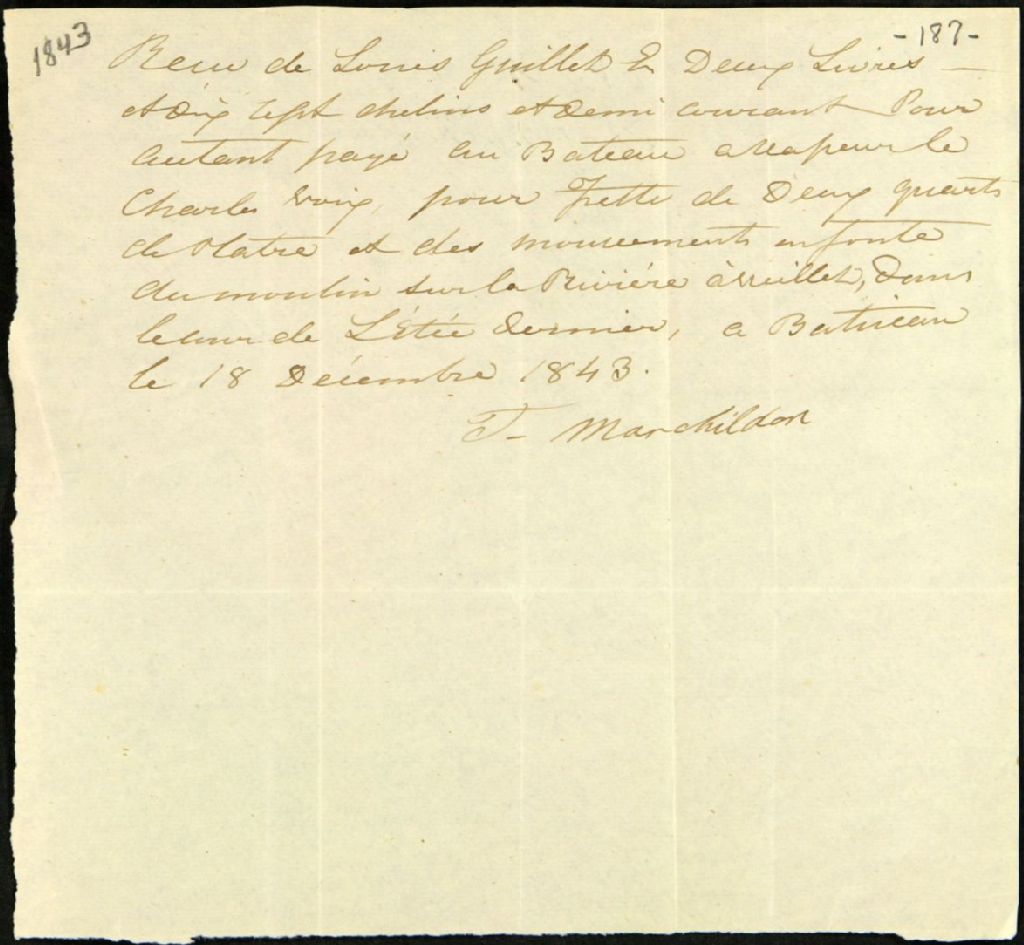 1843
-187-
Recu de Louis Guillet E Deux Livres —
et dix sept chelins et demi courant Pour
autant payé au Bateau a vapeur le
Charles voix, pour Frette de Deux quarts
de Platre et des mouvements en fonte
du moulin sur la Riviére à veillet, Dans
le cour de L'Étée dernier, a Batiscan
le 18 Décembre 1843.
F- Marchildon